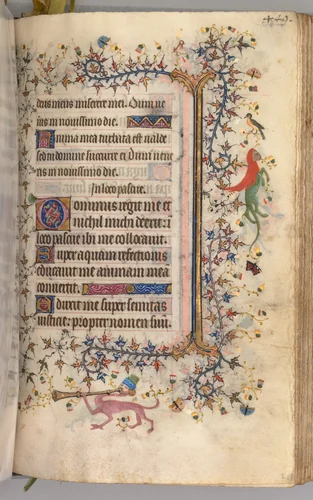 deus meus miserere mei. Cum ue
ias in nouissimo die.
Anima mea turbata est ualde
sed tu domine succurre ei. Dum uene
ris in nouissimo die.
In loco pascue.
Dominus regit me et
michil michi deerit: i
loco pascue ibi me collocauit.
Super aquam refectionis
educauit me animam mea
conuertit.
Deduxit me super semitas
iusticie: propter nomen suū.